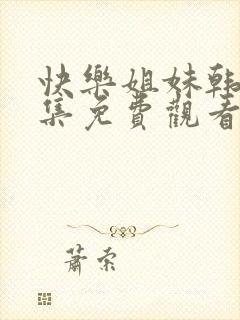 快樂姐妹韩
集免費觀看
蕭索